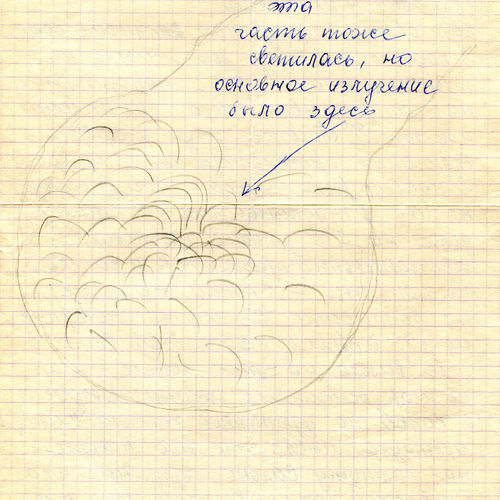 эта
часть тоже
светилась, но
основное излучение
было здесь